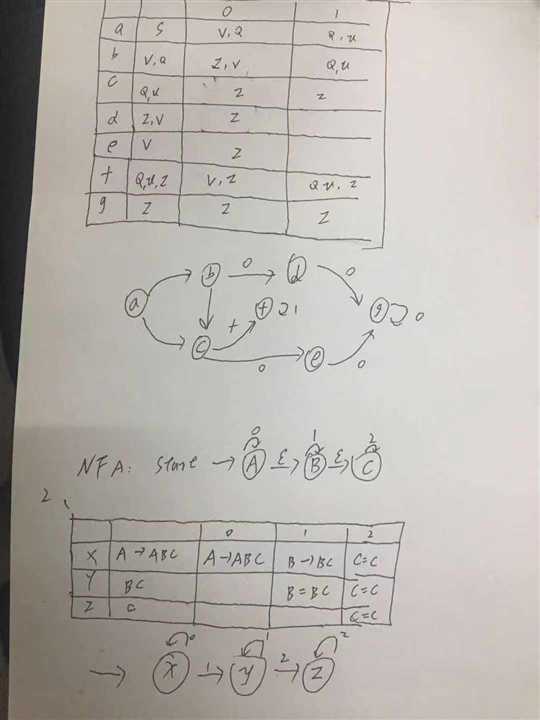 0 1
a S V,Q Q,u
b V,Q Z,V Q,u
c Q,u Z Z
d Z,V Z
e V Z
f Q,u,Z V,Z Q,u,Z
g Z Z Z
b 0 d 0
a f 21 g 0
c + 0 e 0
0 1 2
NFA: start → A ε→ B ε→ C
2、
0 1 2
X A→ABC A→ABC B→BC C=C
Y BC B=BC C=C
Z C C=C
0 1 2
→ X 1→ Y 2→ Z